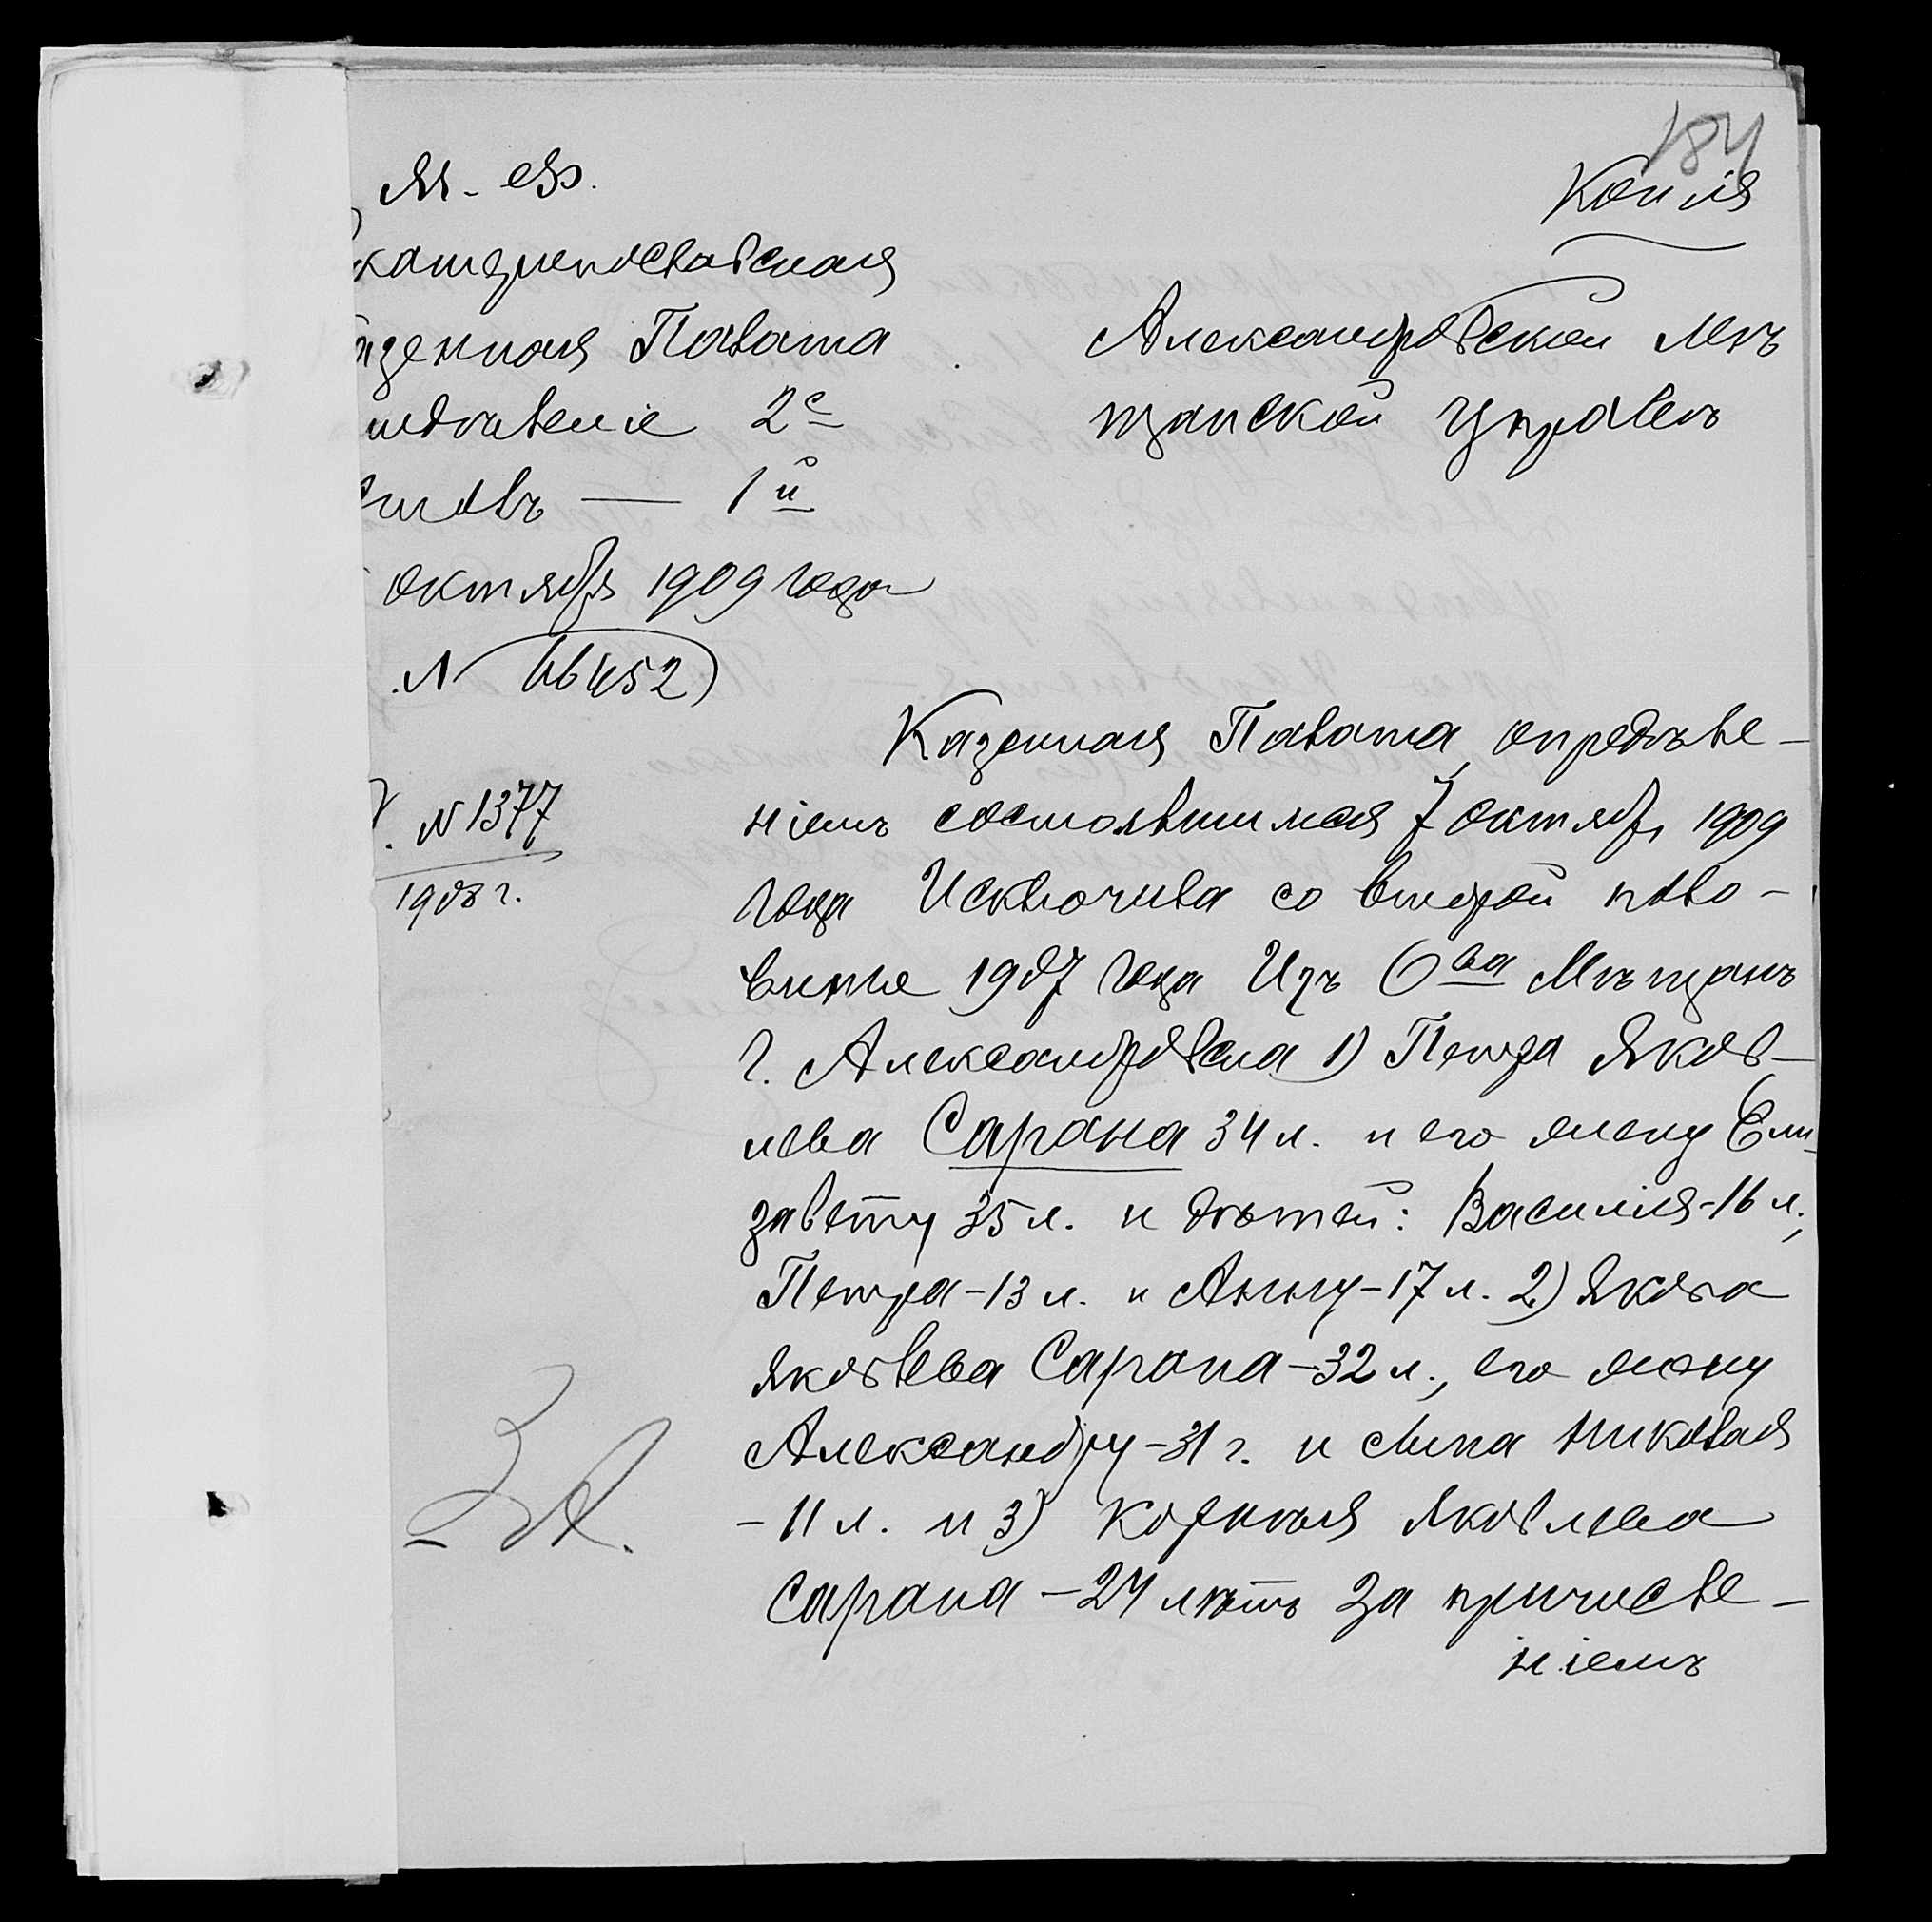 184
Копія
М. Ф.
катеринославская
азенная Палата
тдѣленіе 2е
столъ — 1й
октября 1909 года
№ 46452
№ 1377
1908 г.
Александровской Мѣ
щанской Управѣ
Казенная Палата, опредѣле-
ніемъ состоявшимся 7 октября 1909
года Исключила со второй поло-
вины 1907 года Изъ Ова Мѣщанъ
г. Александровска 1) Петра Яков-
лева Сарана 34 л. и его жену Ели-
завету 35 л. и дѣтей: Василія-16 л.,
Петра-13 л. и Анну-17 л. 2) Якова
Яковлева Сарана-32 л., его жену
Александру-31 г. и сына Николая
-11 л. и 3) Корнилія Яковлева
Сарана-24 лѣтъ за причисле-
ніемъ